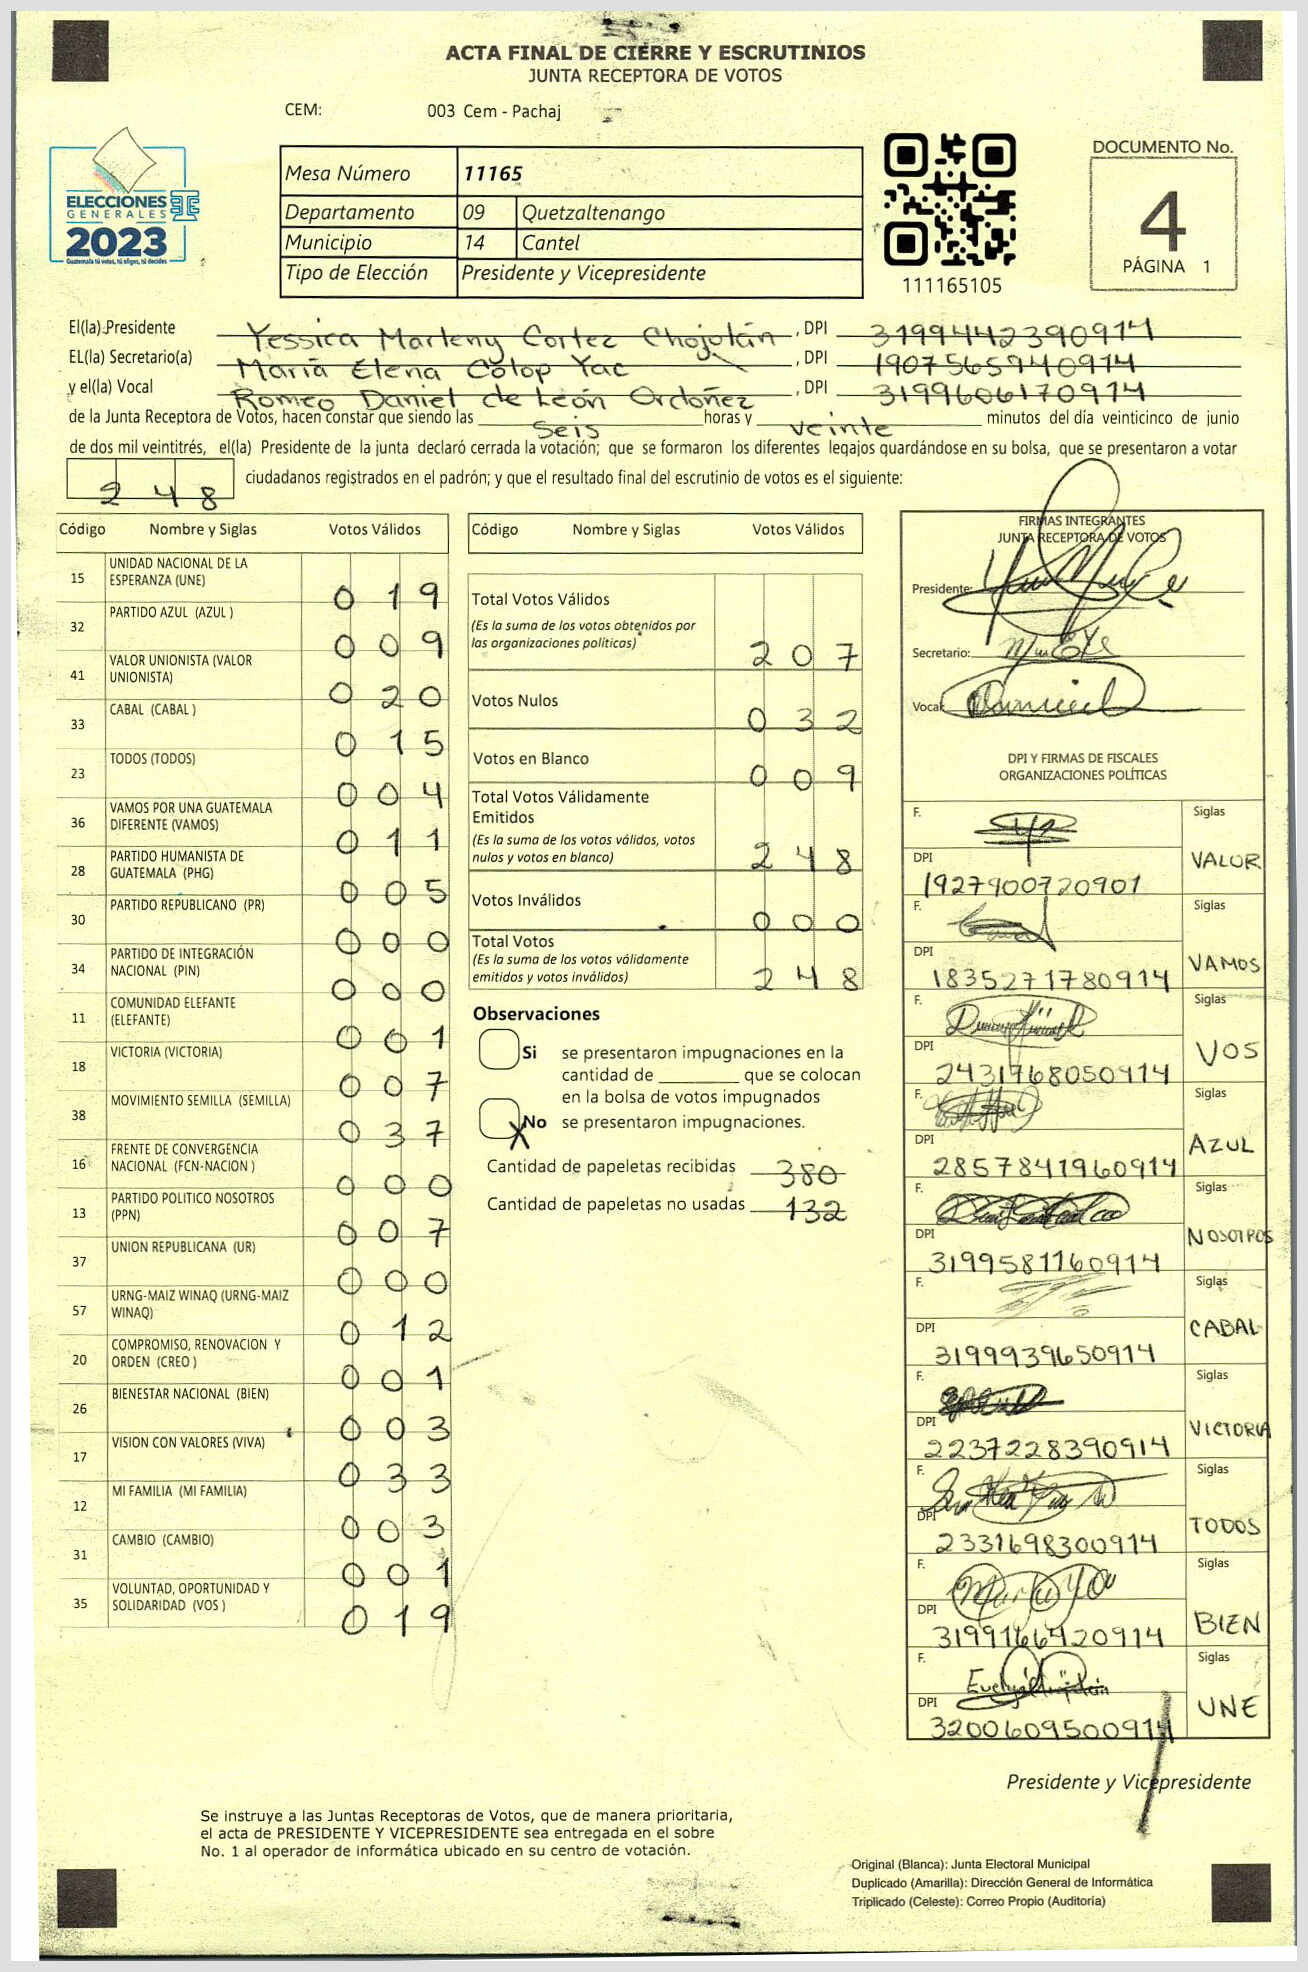 ACTA FINAL DE CIERRE Y ESCRUTINIOS
JUNTA RECEPTORA DE VOTOS
CEM: 003 Cem - Pachaj
ELECCIONES
GENERALES
2023
Guatemala tú votas, tú eliges, tú decides
Mesa Número 11165
Departamento 09 Quetzaltenango
Municipio 14 Cantel
Tipo de Elección Presidente y Vicepresidente
111165105
DOCUMENTO No.
4
PÁGINA 1
El(la).Presidente Yessica Marleny Cortez Chojolán , DPI 3199442390914
EL(la) Secretario(a) María Elena Colop Yac , DPI 1907565940914
y el(la) Vocal Romeo Daniel de León Ordóñez , DPI 3199606170914
de la Junta Receptora de Votos, hacen constar que siendo las seis horas y veinte minutos del día veinticinco de junio
de dos mil veintitrés, el(la) Presidente de la junta declaró cerrada la votación; que se formaron los diferentes legajos guardándose en su bolsa, que se presentaron a votar
248 ciudadanos registrados en el padrón; y que el resultado final del escrutinio de votos es el siguiente:
Código Nombre y Siglas Votos Válidos
15 UNIDAD NACIONAL DE LA ESPERANZA (UNE) 019
32 PARTIDO AZUL (AZUL ) 009
41 VALOR UNIONISTA (VALOR UNIONISTA) 020
33 CABAL (CABAL ) 015
23 TODOS (TODOS) 004
36 VAMOS POR UNA GUATEMALA DIFERENTE (VAMOS) 011
28 PARTIDO HUMANISTA DE GUATEMALA (PHG) 005
30 PARTIDO REPUBLICANO (PR) 000
34 PARTIDO DE INTEGRACIÓN NACIONAL (PIN) 000
11 COMUNIDAD ELEFANTE (ELEFANTE) 001
18 VICTORIA (VICTORIA) 007
38 MOVIMIENTO SEMILLA (SEMILLA) 037
16 FRENTE DE CONVERGENCIA NACIONAL (FCN-NACION ) 000
13 PARTIDO POLITICO NOSOTROS (PPN) 007
37 UNION REPUBLICANA (UR) 000
57 URNG-MAIZ WINAQ (URNG-MAIZ WINAQ) 012
20 COMPROMISO, RENOVACION Y ORDEN (CREO ) 001
26 BIENESTAR NACIONAL (BIEN) 003
17 VISION CON VALORES (VIVA) 033
12 MI FAMILIA (MI FAMILIA) 003
31 CAMBIO (CAMBIO) 001
35 VOLUNTAD, OPORTUNIDAD Y SOLIDARIDAD (VOS ) 019
Código Nombre y Siglas Votos Válidos
Total Votos Válidos
(Es la suma de los votos obtenidos por
las organizaciones politicas) 207
Votos Nulos 032
Votos en Blanco 009
Total Votos Válidamente
Emitidos
(Es la suma de los votos válidos, votos
nulos y votos en blanco) 248
Votos Inválidos 000
Total Votos
(Es la suma de los votos válidamente
emitidos y votos inválidos) 248
Observaciones
Si se presentaron impugnaciones en la
cantidad de ________ que se colocan
en la bolsa de votos impugnados
X No se presentaron impugnaciones.
Cantidad de papeletas recibidas 380
Cantidad de papeletas no usadas 132
FIRMAS INTEGRANTES
JUNTA RECEPTORA DE VOTOS
Presidente:
Secretario:
Vocal:
DPI Y FIRMAS DE FISCALES
ORGANIZACIONES POLÍTICAS
F. Siglas
DPI 1927900720901 VALOR
F. Siglas
DPI 1835271780914 VAMOS
F. Siglas
DPI 2431768050914 VOS
F. Siglas
DPI 2857841960914 AZUL
F. Siglas
DPI 3199581160914 NOSOTROS
F. Siglas
DPI 3199939650914 CABAL
F. Siglas
DPI 2237228390914 VICTORIA
F. Siglas
DPI 2331698300914 TODOS
F. Siglas
DPI 3199166420914 BIEN
F. Siglas
DPI 3200609500914 UNE
Presidente y Vicepresidente
Se instruye a las Juntas Receptoras de Votos, que de manera prioritaria,
el acta de PRESIDENTE Y VICEPRESIDENTE sea entregada en el sobre
No. 1 al operador de informática ubicado en su centro de votación.
Original (Blanca): Junta Electoral Municipal
Duplicado (Amarilla): Dirección General de Informática
Triplicado (Celeste): Correo Propio (Auditoría)